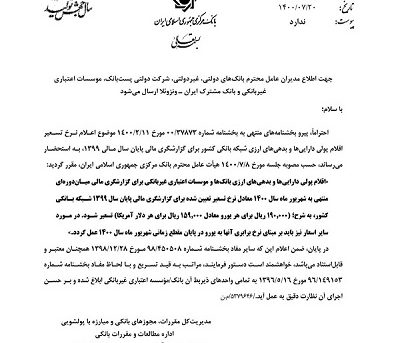 سال جهش تولید
تاریخ: ۱۴۰۰/۰۷/۲۰
پیوست: ندارد
بانک مرکزی جمهوری اسلامی ایران
بسمه تعالی
جهت اطلاع مدیران عامل محترم بانک‌های دولتی، غیردولتی، شرکت دولتی پست‌بانک، موسسات اعتباری
غیربانکی و بانک مشترک ایران – ونزوئلا ارسال می‌شود
با سلام؛
احتراماً، پیرو بخشنامه‌های منتهی به بخشنامه شماره ۰۰/۳۷۸۷۳ مورخ ۱۴۰۰/۲/۱۱ موضوع اعلام نرخ تسعیر
اقلام پولی دارایی‌ها و بدهی‌های ارزی شبکه بانکی کشور برای گزارشگری مالی پایان سال مالی ۱۳۹۹، به استحضار
می‌رساند، حسب مصوبه جلسه مورخ ۱۴۰۰/۷/۸ هیأت عامل محترم بانک مرکزی جمهوری اسلامی ایران، مقرر گردید:
«اقلام پولی دارایی‌ها و بدهی‌های ارزی بانک‌ها و موسسات اعتباری غیربانکی برای گزارشگری مالی میان‌دوره‌ای
منتهی به شهریور ماه سال ۱۴۰۰ معادل نرخ تسعیر تعیین شده برای گزارشگری مالی پایان سال ۱۳۹۹ شبکه بانکی
کشور، به شرح؛ (۱۹۰,۰۰۰ ریال برای هر یورو معادل ۱۵۹,۰۰۰ ریال برای هر دلار آمریکا) تسعیر شود. در مورد
سایر اسعار نیز باید بر مبنای نرخ برابری آنها به یورو در پایان مقطع زمانی شهریور ماه سال ۱۴۰۰ عمل گردد.»
در پایان، ضمن اعلام این که سایر مفاد بخشنامه شماره ۹۸/۴۵۰۵۰۸ مورخ ۱۳۹۸/۱۲/۲۸ همچنان معتبر و
قابل‌استناد می‌باشد، خواهشمند است دستور فرمایند، مراتب به قید تسریع و با لحاظ مفاد بخشنامه شماره
۹۶/۱۴۹۱۵۳ مورخ ۱۳۹۶/۵/۱۶ به تمامی واحدهای ذیربط آن بانک/مؤسسه اعتباری غیربانکی ابلاغ شده و بر حسن
اجرای آن نظارت دقیق به عمل آید. /۵۳۷۹۶۴۶
مدیریت کل مقررات، مجوزهای بانکی و مبارزه با پولشویی
اداره مطالعات و مقررات بانکی